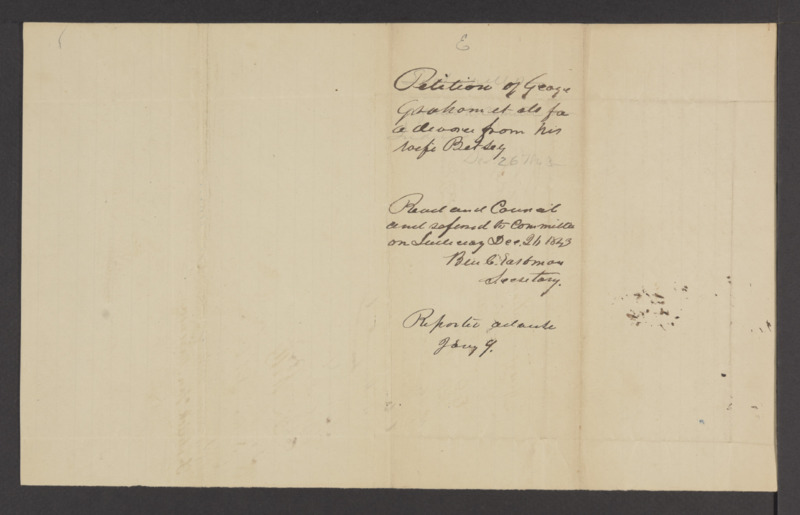 E
Petition of George
Graham et als for
a divorce from his
wife Betsey
Read and Council
and refered to Committee
on Judiciary Dec. 26 1843
Ben C. Eastman
Secretary.
Reported
Jany 9.